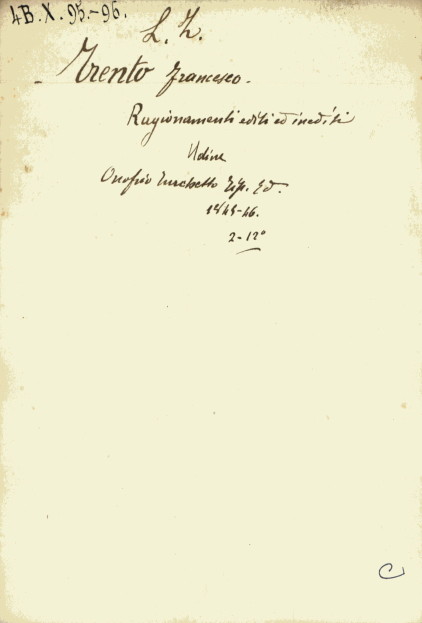 4B.X.95.-96.
L. Z.
Trento Francesco.
Ragionamenti editi ed inediti
Udine
Onofrio Turchetto Tip. Ed.
1845-46.
2-12°
C